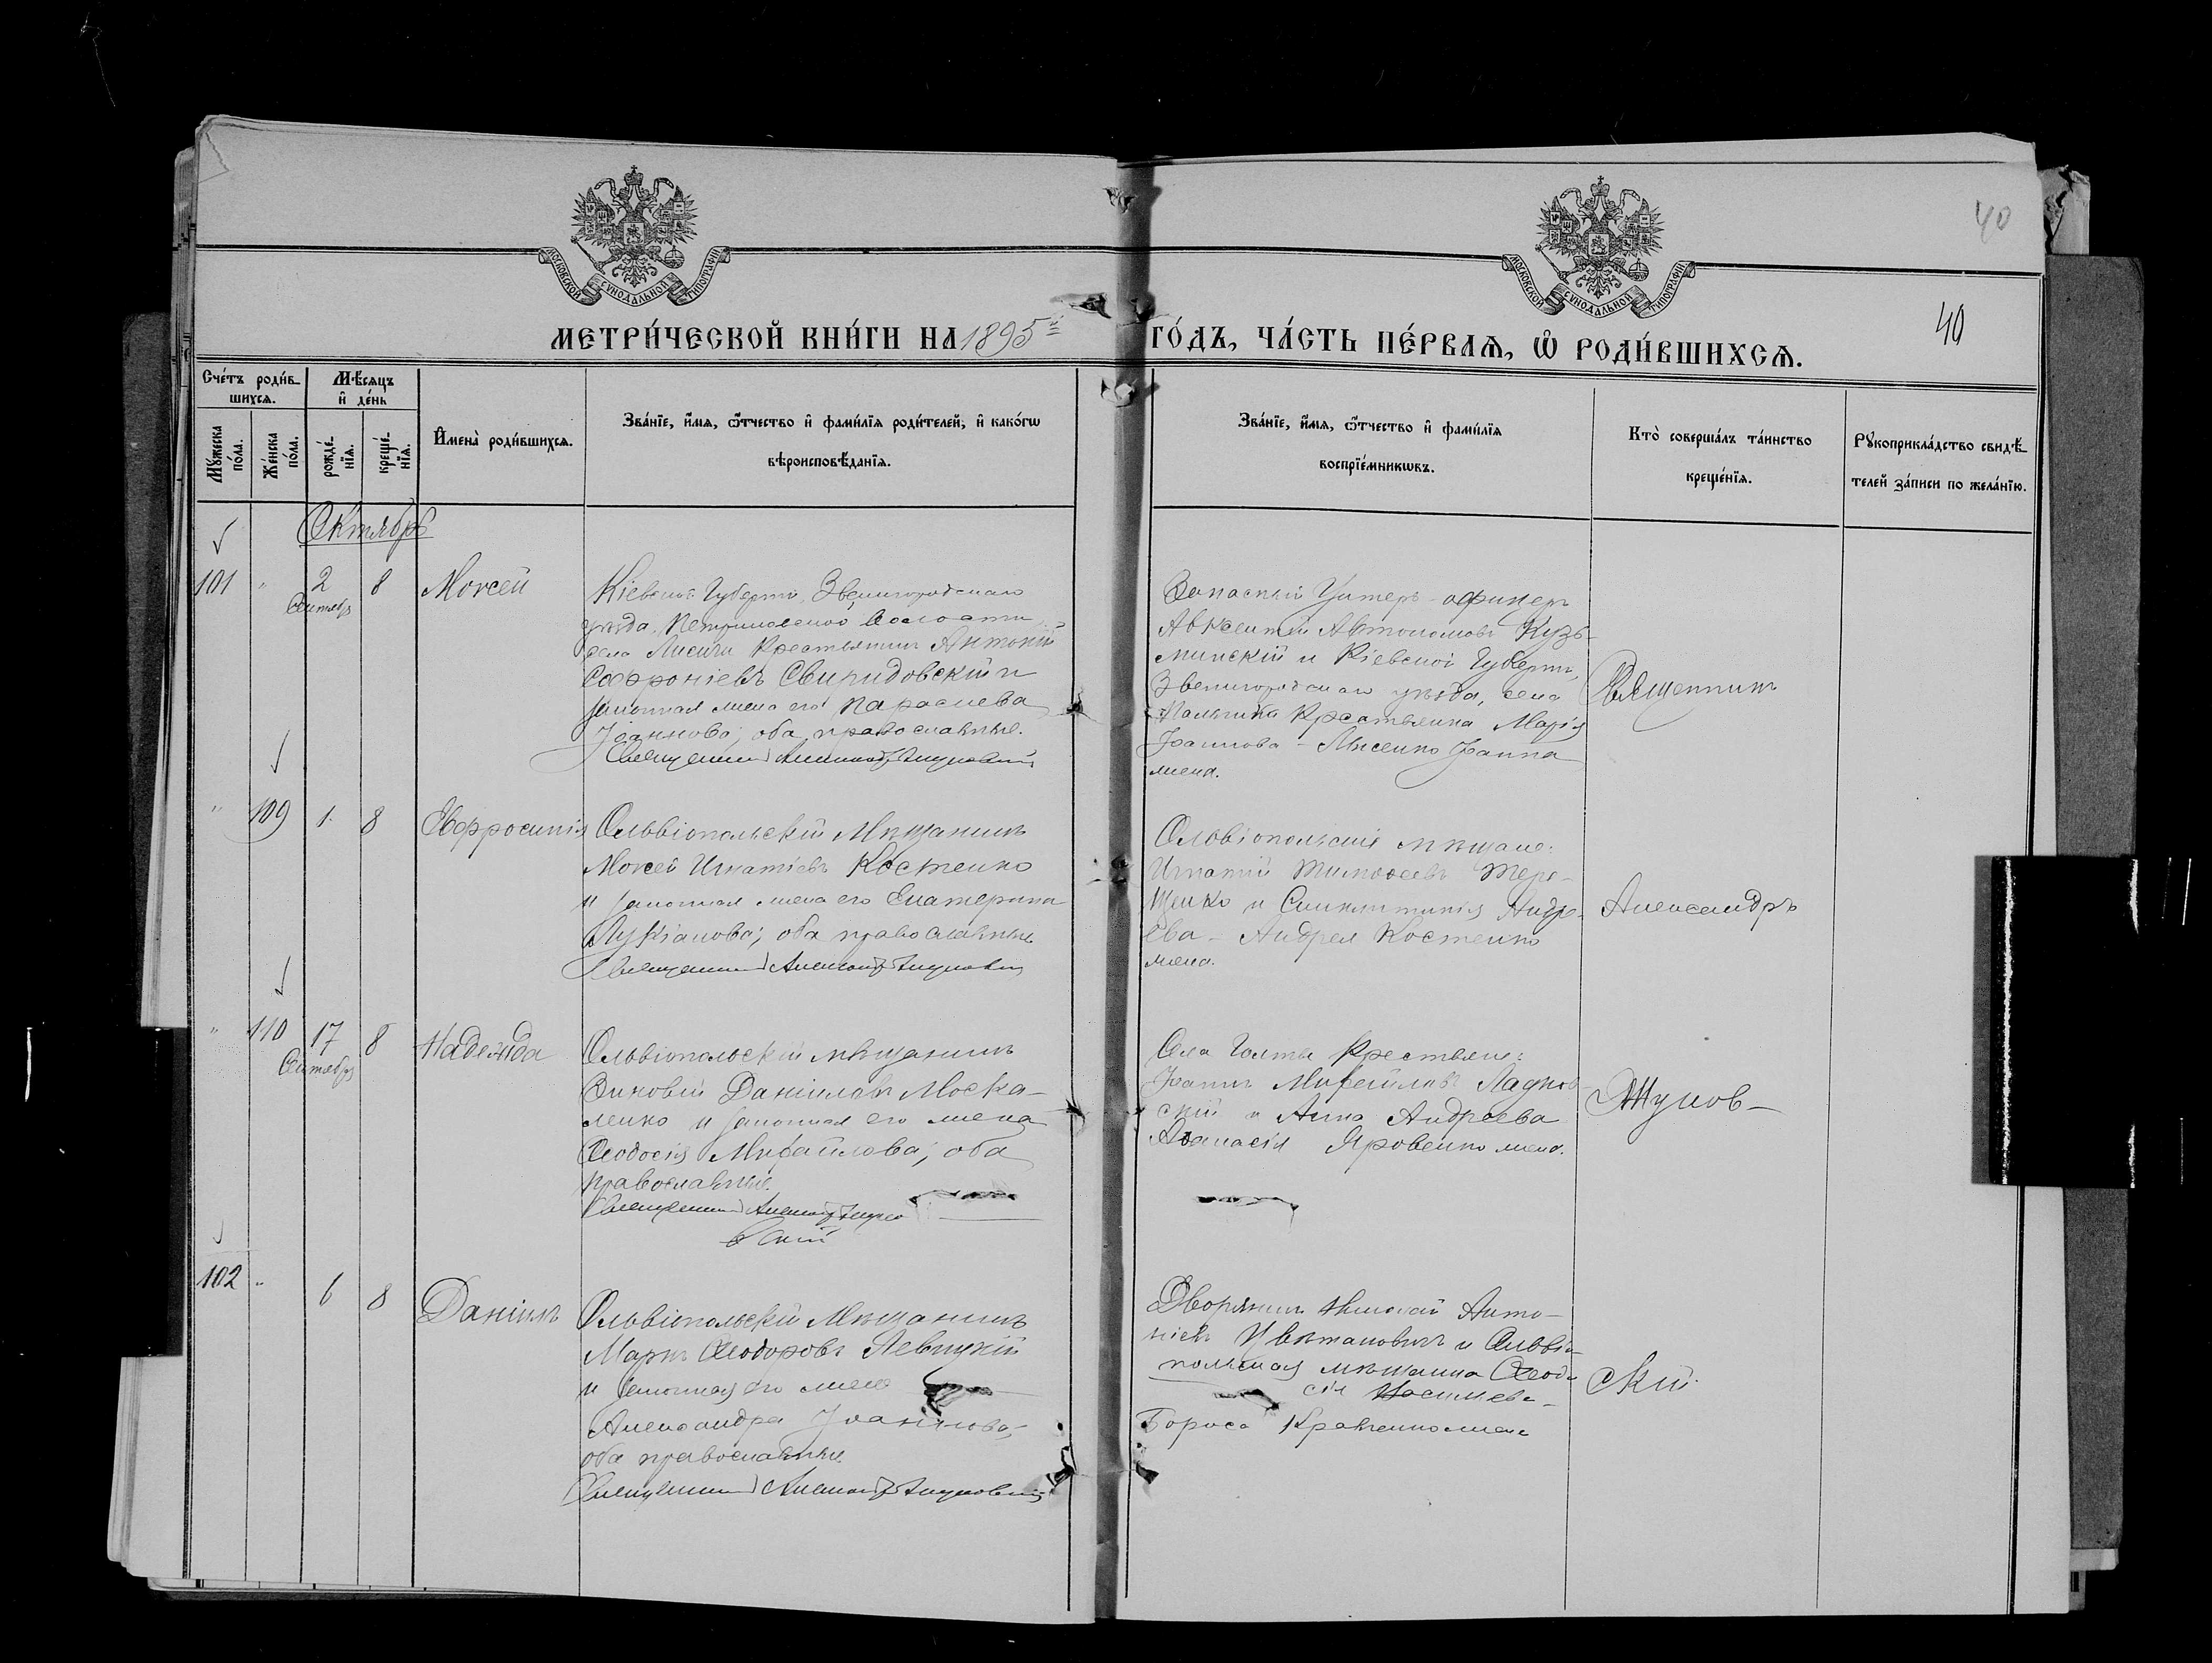 40
МОСКОВСКОЙ СУНОДАЛЬНОЙ ТИПОГРАФІИ
МОСКОВСКОЙ СУНОДАЛЬНОЙ ТИПОГРАФІИ
40
МЕТРИ́ЧЕСКОЙ КНИ́ГИ НА 1895й ГО́ДЪ, ЧА́СТЬ ПЕ́РВАѦ, Ѡ҆ РОДИ́ВШИХСѦ.
Сче́тъ роди́в-
шихсѧ.
Мѣ́сѧцъ
и҆ де́нь
Мꙋ́жеска
по́ла.
Же́нска
по́ла.
рожде́-
нїѧ.
креще́-
нїѧ.
И҆мена̀ роди́вшихсѧ.
Зва́нїе, и҆́мѧ, ѻ҆́тчество и҆ фами́лїѧ роди́телей, и҆ како́гѡ
вѣроисповѣ́данїѧ.
Зва́нїе, и҆́мѧ, ѻ҆́тчество и҆ фами́лїѧ
воспрїе́мникѡвъ.
Кто̀ соверша́лъ та́инство
креще́нїѧ.
Рꙋкоприкла́дство свидѣ́-
телей за́писи по жела́нїю.
Октябрь
101 " 2 8 Моѵсей
Сентябр
Кіевской Губерніи, Звенигородскаго
уѣзда, волости
села Лисичи Крестьянинъ Антоній
Софроніевъ Свиридовскій и
законная жена его Параскева
Іоаннова; оба православные.
Священникъ Александръ Жуковскій
Запасный Унтеръ-офицеръ
Авксентій Автономовъ Кузь-
минскій и Кіевской Губерніи,
Звенигородскаго уѣзда, села
Крестьянка Марія
Іоаннова - Лисенко Іоанна
жена.
Священникъ
" 109 1 8 Евфросинія
Ольвіопольскій Мѣщанинъ
Моѵсей Игнатіевъ Костенко
и законная жена его Екатерина
Лукіанова; оба православные
Священникъ Александръ Жуковскій
Ольвіопольскіе мѣщане:
Игнатій Тимоѳеевъ Тере-
щенко и Синклитикія Андре-
ева - Андрея Костенко
жена.
Александръ
" 110 17 8 Надежда
Сентябр
Ольвіопольскій мѣщанинъ
Зиновій Даніиловъ Моска-
ленко и законная его жена
Ѳеодосія Михайлова; оба
православные.
Священникъ Александръ Жуко
вскій
Села Голты Крестьяне:
Іоаннъ Михайловъ Ладнов-
скій и Анна Андреева
Аѳанасія Яровенко жена.
Жуков-
102 " 6 8 Даніилъ
Ольвіопольскій Мѣщанинъ
Маркъ Ѳеодоровъ Левицкій
и законная его жена
Александра Іоаннова;
оба православные.
Священникъ Александръ Жуковскій
Дворянинъ Николай Анто-
ніевъ и Ольвіо-
польская мѣщанка Ѳеодо-
сія Васильева-
Бориса Кравченко жена
скій.